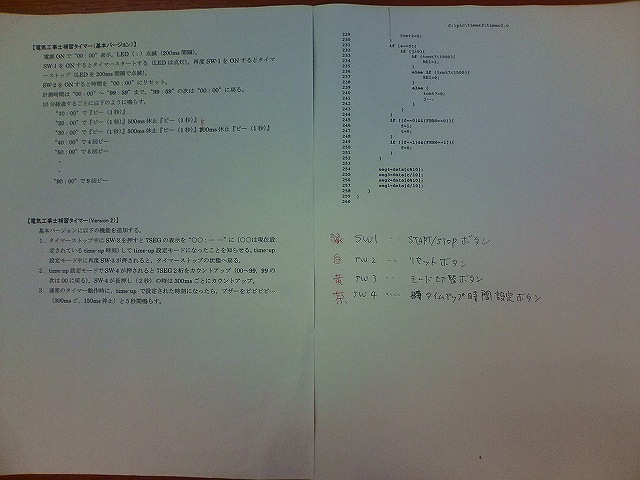 【電気工事士補習タイマー(基本バージョン)】
電源 ON で "00:00" 表示、LED(:)点滅(200ms 間隔)。
SW-1 を ON するとタイマースタートする(LED は点灯)。再度 SW-1 を ON するとタイマ
ーストップ(LED を 200ms 間隔で点滅)。
SW-2 を ON すると時間を "00:00" にリセット。
計測時間は "00:00" ～ "99:59" まで。"99:59" の次は "00:00" に戻る。
10 分経過するごとに以下のように鳴らす。
"10:00" で『ピー(1 秒)』
"20:00" で『ピー(1 秒)』500ms 休止『ピー(1 秒)』
"30:00" で『ピー(1 秒)』500ms 休止『ピー(1 秒)』 500ms 休止『ピー(1 秒)』
"40:00" で 4 回ピー
"50:00" で 5 回ピー
・
・
"90:00" で 9 回ピー
【電気工事士補習タイマー(Version 2)】
基本バージョンに以下の機能を追加する。
1．タイマーストップ中に SW-3 を押すと 7SEG の表示を "○○:－－" に(○○は現在設
定されている time-up 時刻)して time-up 設定モードになったことを知らせる。time-up
設定モード中に再度 SW-3 が押されると、タイマーストップの状態へ戻る。
2．time-up 設定モードで SW-4 が押されると 7SEG 2 桁をカウントアップ(00～99、99 の
次は 00 に戻る)。SW-4 が長押し(2 秒)の時は 300ms ごとにカウントアップ。
3．通常のタイマー動作時に、time-up で設定された時刻になったら、ブザーをピピピピ…
(300ms ピ、150ms 停止)と 5 秒間鳴らす。
C:\pic\timer2\timer2.c
229 tcnt2=0;
230 }
231 if (s==0){
232 if (j>0){
233 if (tcnt7<1000){
234
235 }
236 else if (tcnt7<1500){
237
238 }
239 else {
240 tcnt7=0;
241 j--;
242 }
243 }
244 }
245
246 f=1;
247 t=0;
248 }
249
250 f=0;
251 }
252 }
253
254 seg4=data[c%10];
255 seg3=data[c/10];
256 seg2=data[d%10];
257 seg1=data[d/10];
258 }
259 }
260
緑 SW1 … START/STOP ボタン
白 SW2 … リセットボタン
黄 SW3 … モード切替ボタン
茶 SW4 … タイムアップ時間設定ボタン